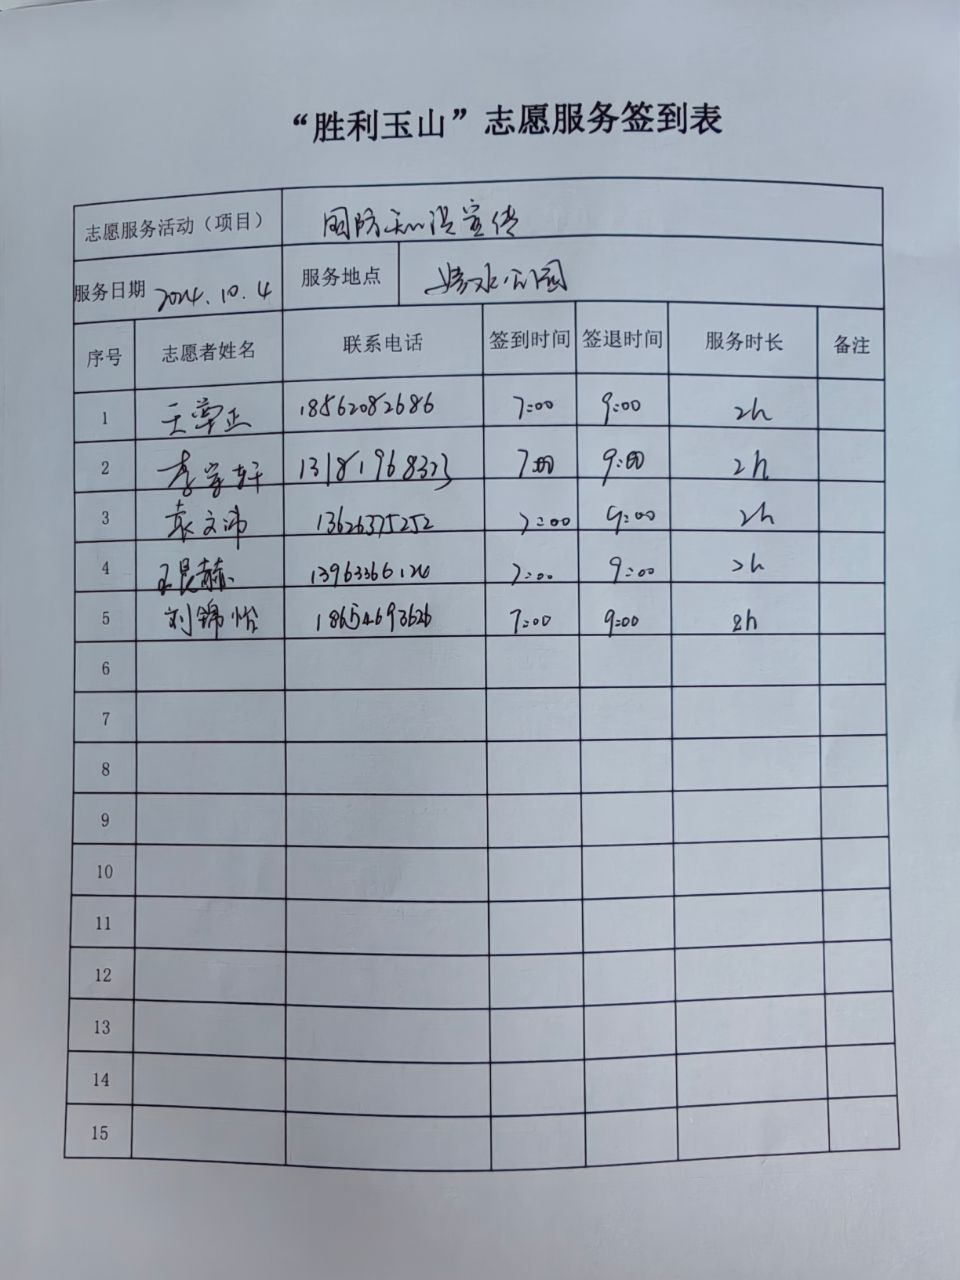 “胜利玉山”志愿服务签到表
志愿服务活动（项目） 国防知识宣传
服务日期 2024.10.4 服务地点 公园
序号 志愿者姓名 联系电话 签到时间 签退时间 服务时长 备注
1 王 正 18562082686 7:00 9:00 2h
2 李 轩 13181968323 7:00 9:00 2h
3 袁文沛 13626375252 7:00 9:00 2h
4 王 赫 7:00 9:00 2h
5 刘锦怡 18654693626 7:00 9:00 2h
6
7
8
9
10
11
12
13
14
15